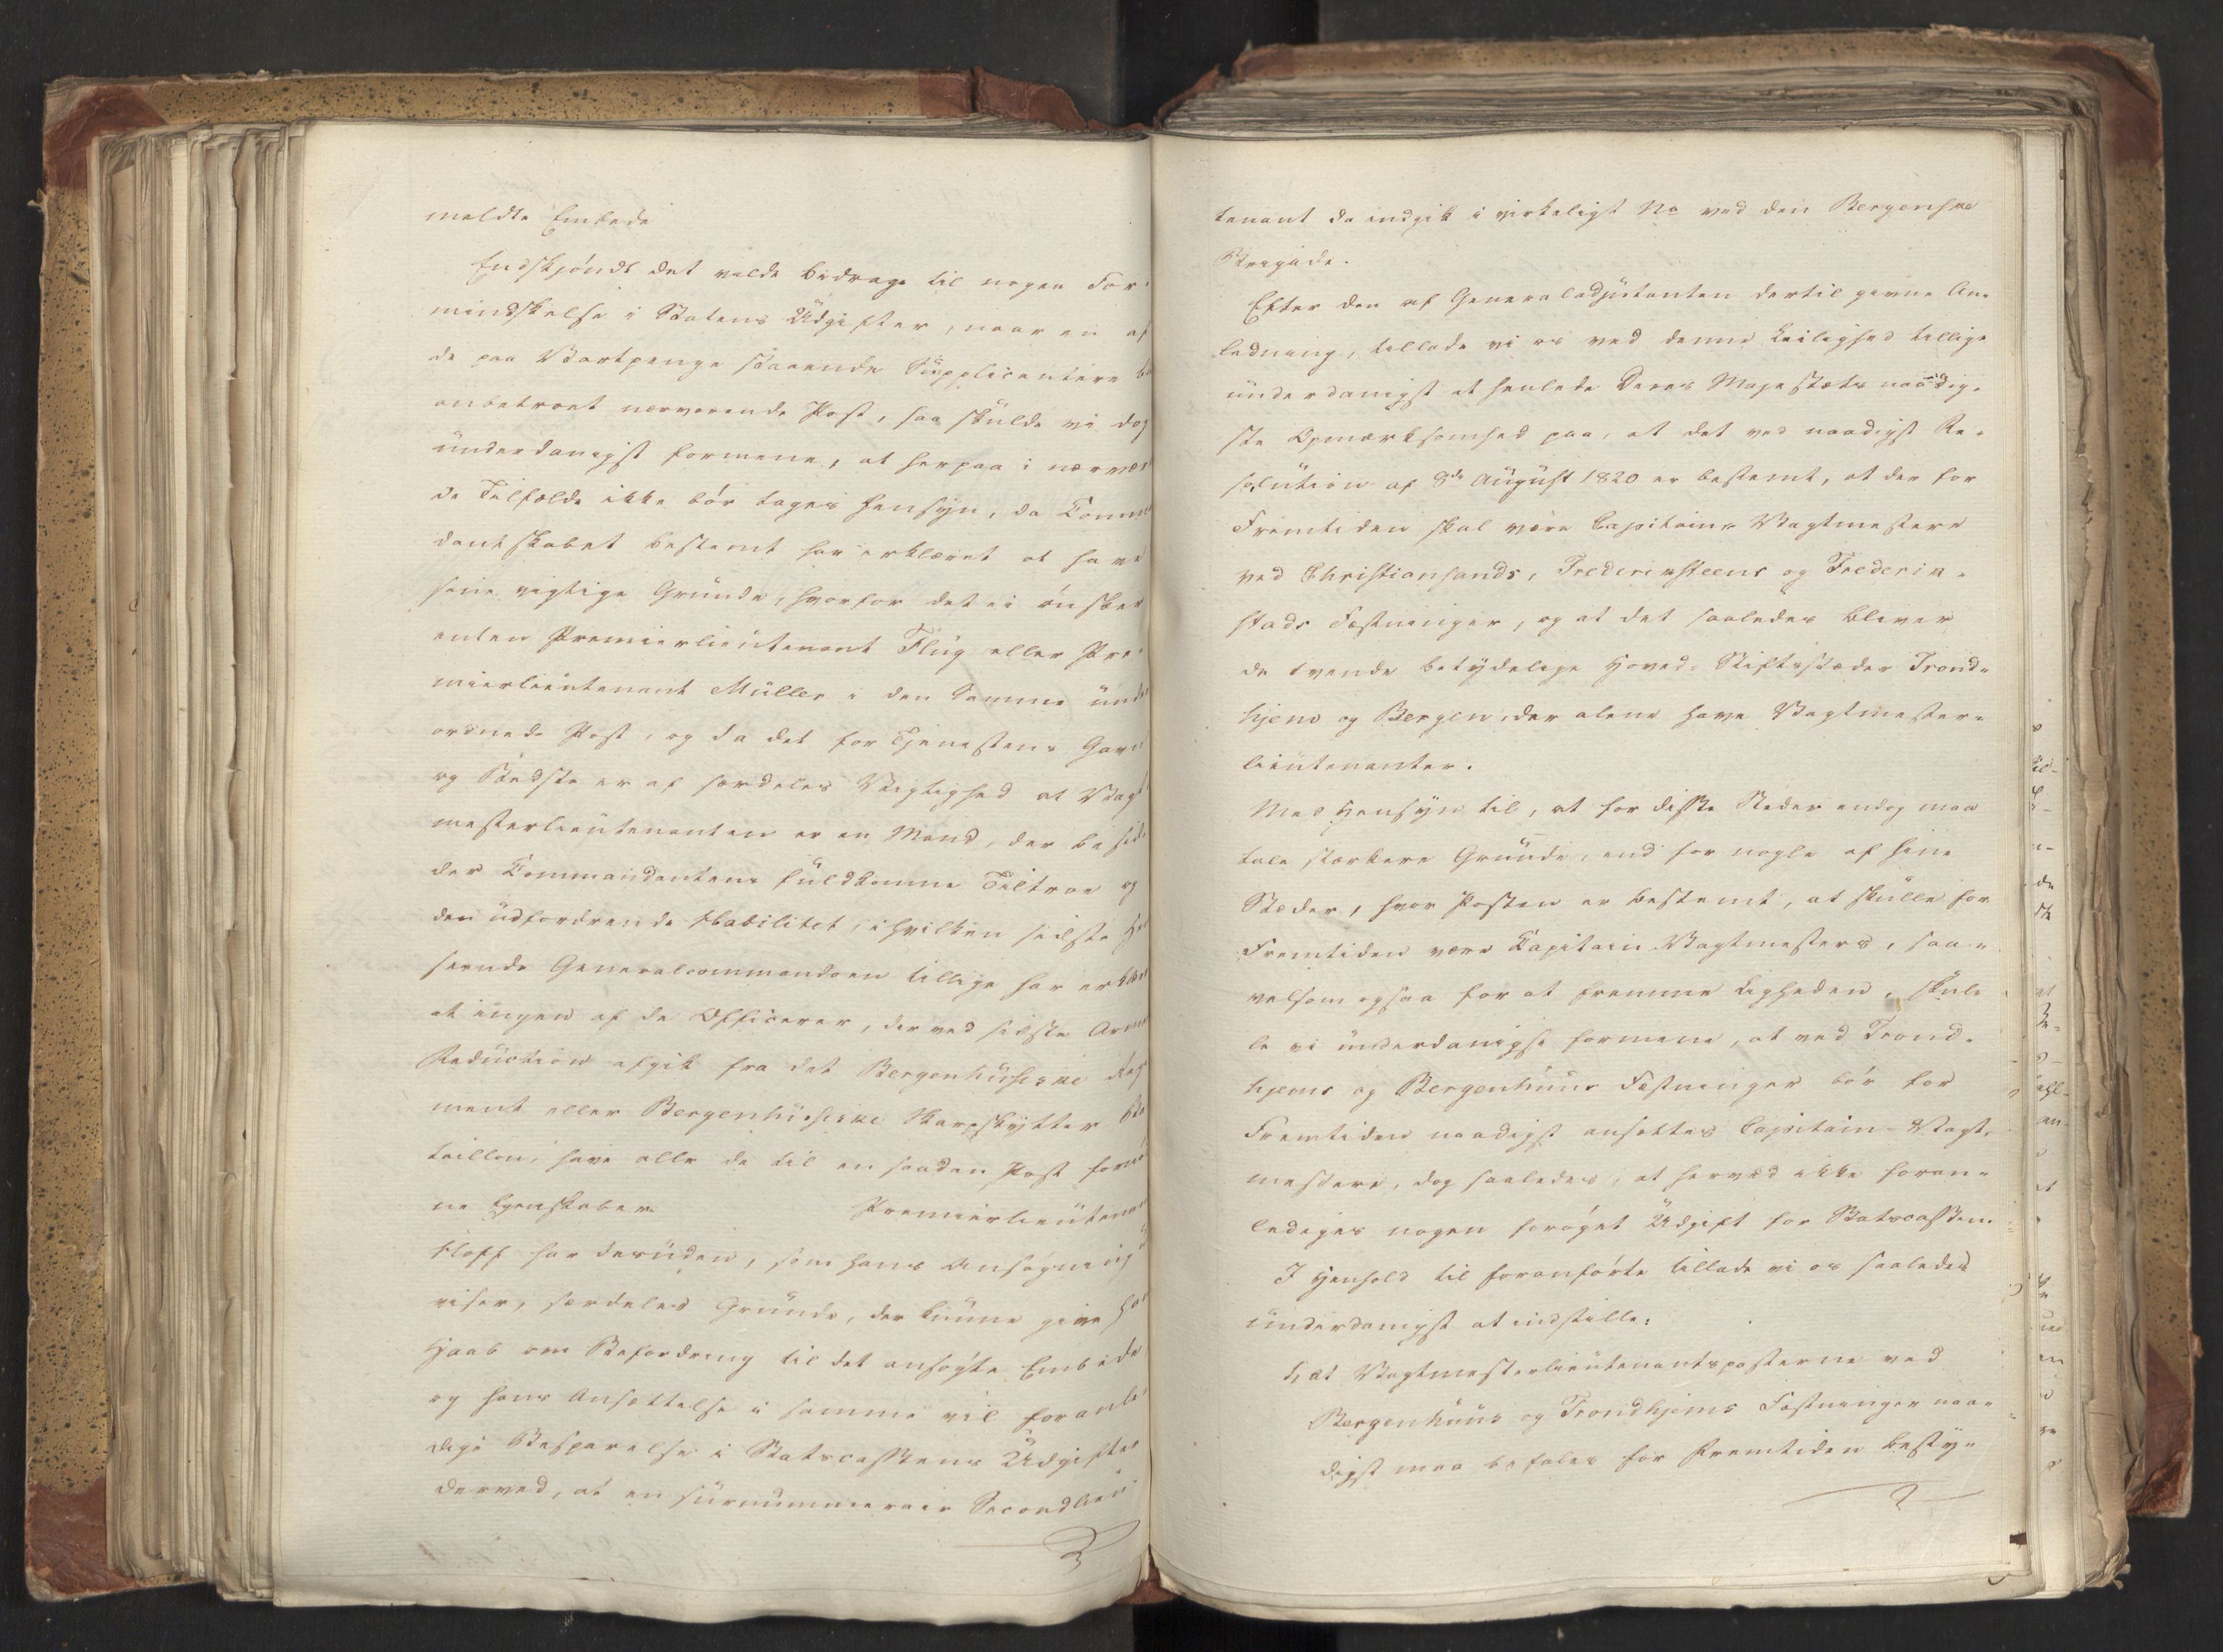 meldte Embede
Endskjöndt det vilde bidrage til nogen For-
mindskelse i Statens Udgifter, naar en af
de paa Vartpenge staaende Supplicantere
anbetroet nærværende Post, saa skulde vi dog
underdanigst formene, at herpaa i nærvær
de Tilfælde ikke bör tages Hensyn, da Comm
dantskabet bestemt har erklæret at have
sine vigtige Grunde, hvorfor det ei önsker
enten Premierlieutenant Flug eller Pre-
mierlieutenant Müller i den samme und
ordnede Post, og da det for Tjenestens Gavn
og Bedste er af særdeles Vigtighed at Vagt
mesterlieutenanten er en Mand, der besid
der Commandantens fuldkomne Tiltroe og
den udfordrende Habilitet, i hvilken sidste Hen
seende Generalcommandoen tillige har erklær
at ingen af de Officerer, der ved sidste Arme
Reduction afgik fra det Bergenhusiske Reg
ment eller Bergenhusiske Skarpskytter Ba
taillon, have alle de til en saadan Post forn
ne Egenskaber. Premierlieutenan
Hoff har desuden, som hans Ansögning
viser, særdeles Grunde, der kunne give ham
Haab om Befordring til det ansögte Embede
og hans Ansættelse i samme vil foranle
dige Besparelse i Statscassens Udgifter
derved, at en surnummerair Secondlieu-
tenant da indgik i virkeligt No ved den Bergenske
Brigade.
Efter den af Generaladjutanten dertil givne An-
ledning, tillade vi os ved denne Leilighed tillige
underdanigst at henlede Deres Majestæts naadig-
ste Opmærksomhed paa, at det ved naadigst Re-
solution af 8de August 1820 er bestemt, at der for
Fremtiden skal være Capitain-Vagtmestere
ved Christiansands, Fredericksteens og Frederik-
stads Fæstninger, og at det saaledes bliver
de tvende betydelige Hoved-Stiftstæder Trond-
hjem og Bergen, der alene have Vagtmester-
lieutenanter.
Med Hensyn til, at for disse Steder endog maa
tale stærkere Grunde, end for nogle af hine
Stæder, hvor Posten er bestemt, at skulle for
Fremtiden være Capitain-Vagtmesters, saa-
velsom ogsaa for at fremme Ligheden, skul-
le vi underdanigst formene, at ved Trond-
hjems og Bergenhuus Fæstninger bör for
Fremtiden naadigst ansættes Capitain-Vagt-
mestere, dog saaledes, at herved ikke foran-
lediges nogen foröget Udgift for Statscassen.
I Henhold til foranförte tillade vi os saaledes
underdanigst at indstille:
1, at Vagtmesterlieutenantsposterne ved
Bergenhuus og Trondhjems Fæstninger naa-
digst maa befales for Fremtiden besty-